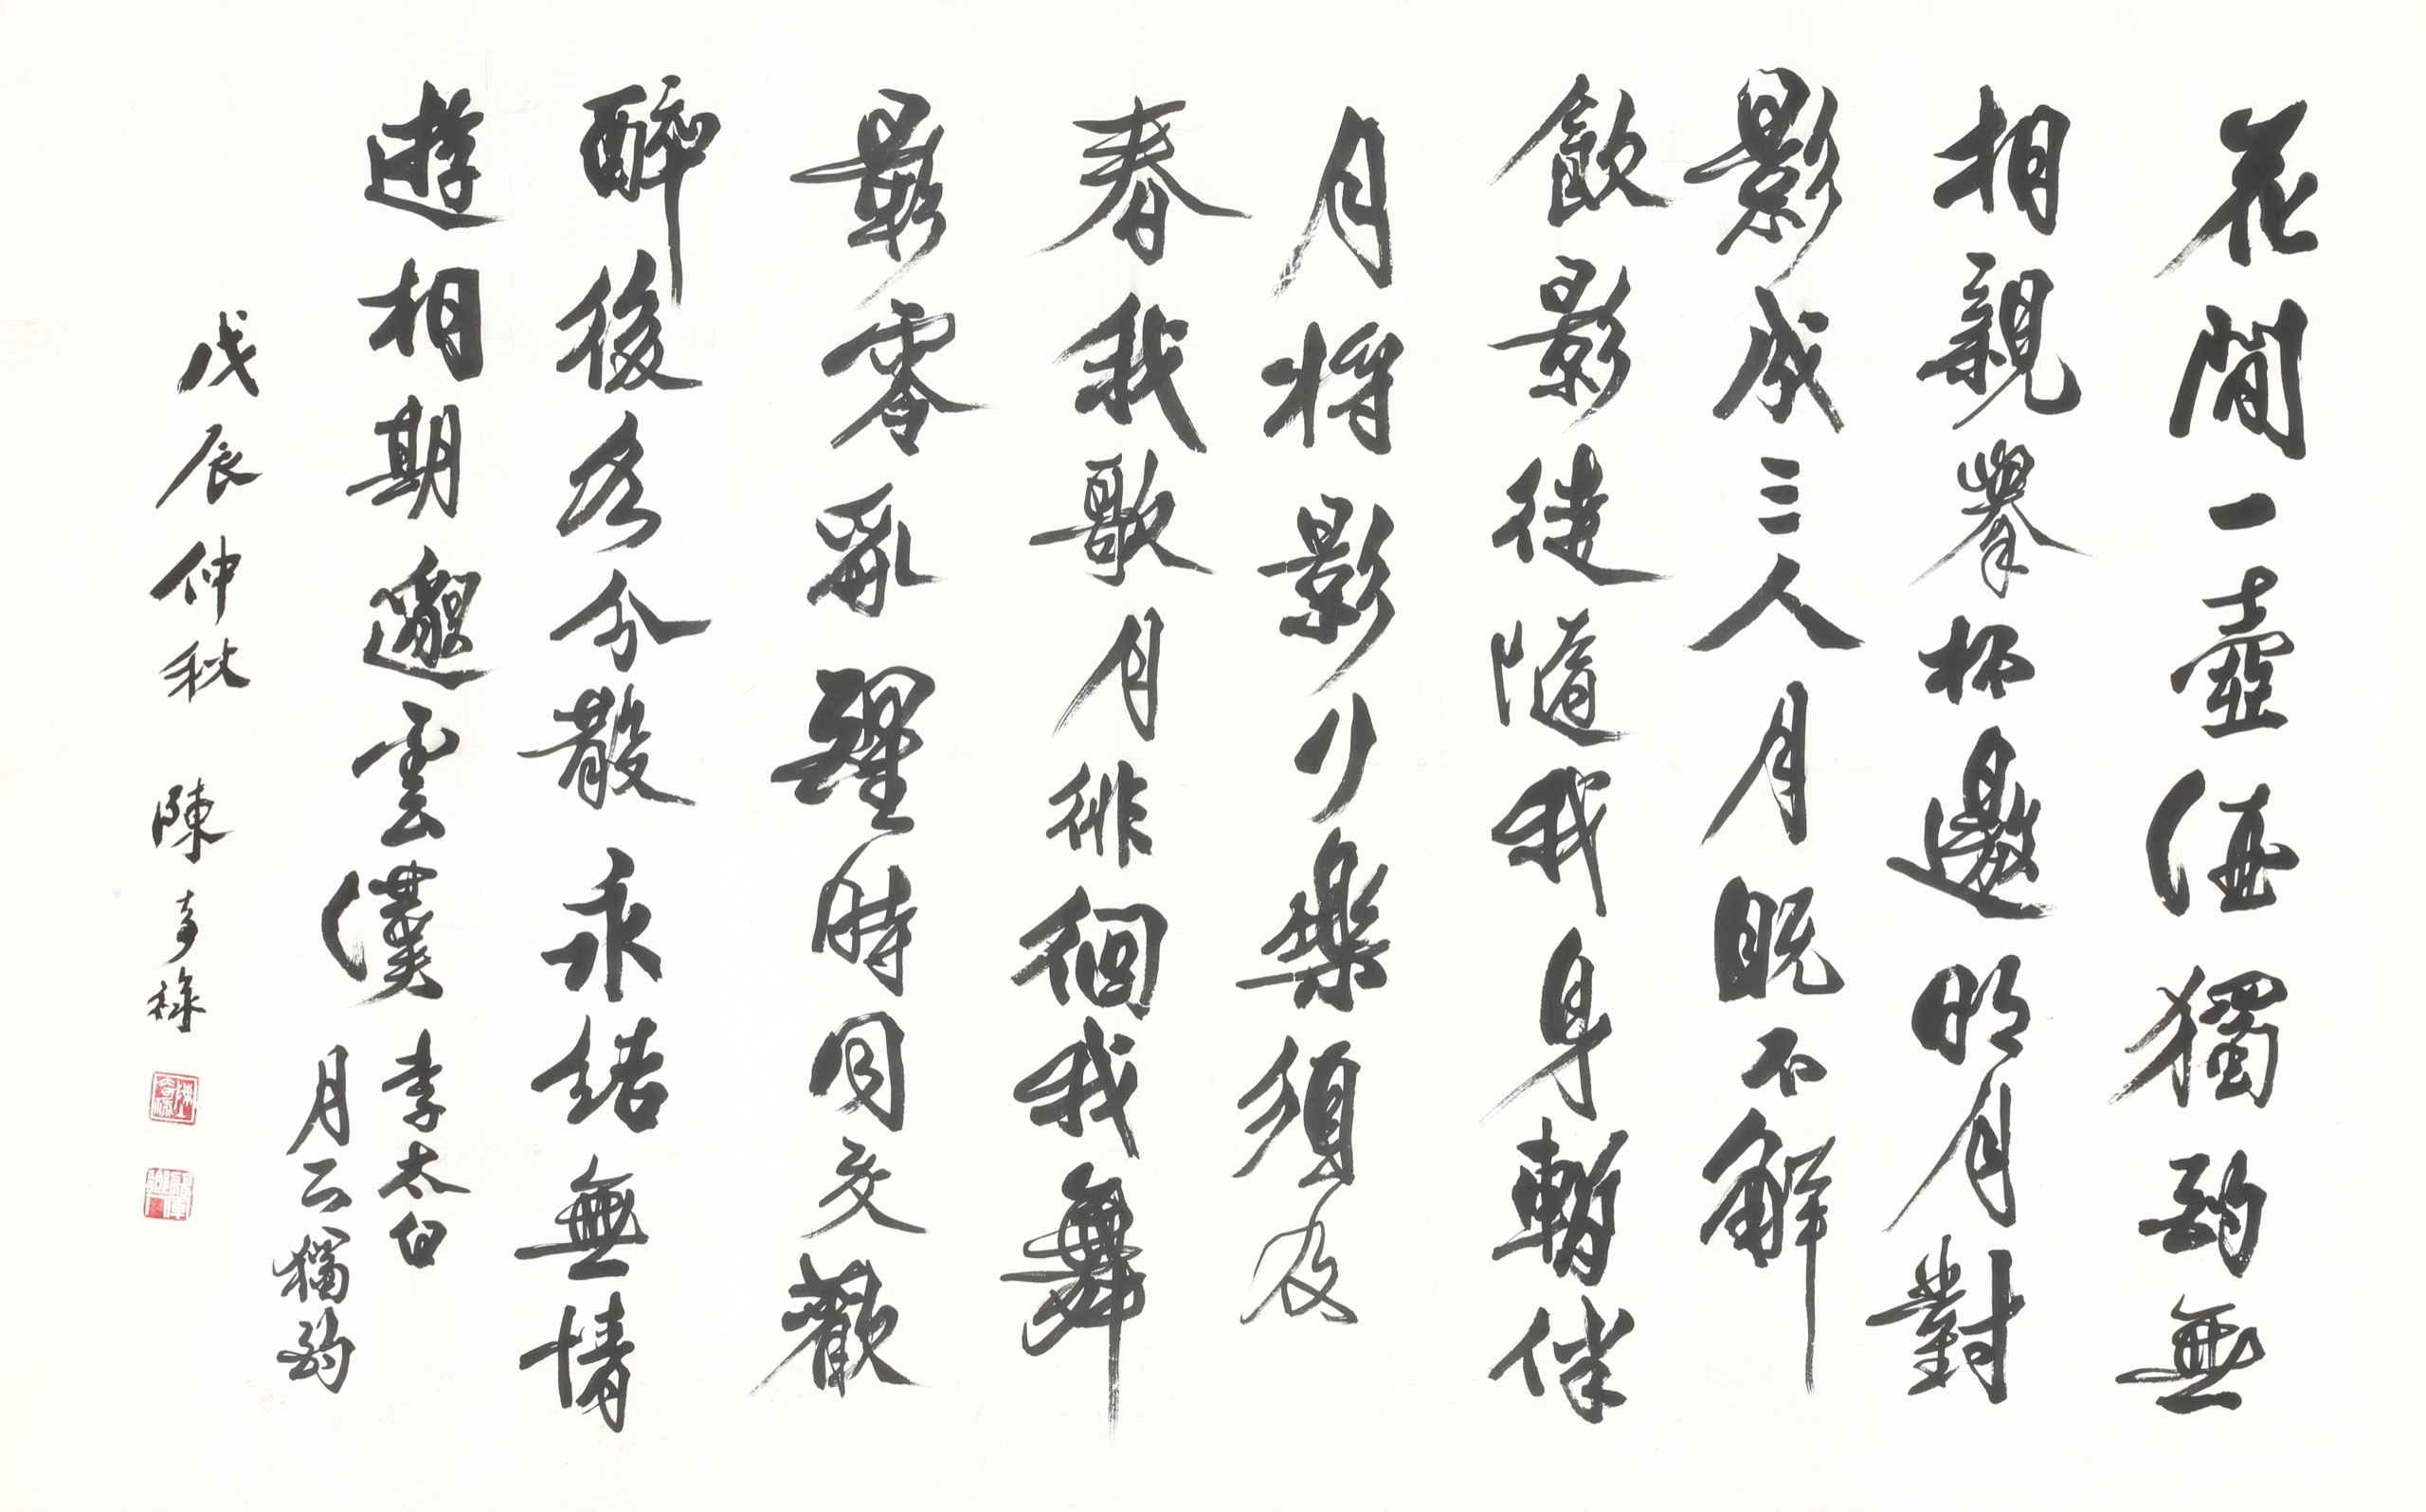 花間一壺酒獨酌無
相親舉杯邀明月對
影成三人月既不解
飲影徒隨我身暫伴
月將影行樂須及
春我歌月徘徊我舞
影零亂醒時同交歡
醉後各分散永結無情
遊相期邈雲漢
李太白
月下獨酌
戊辰仲秋 陳奇祿